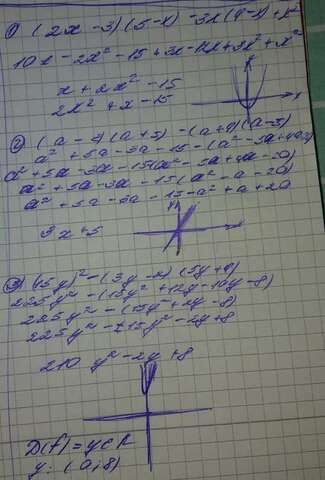 1) (2x - 3)(5 - x) - 3x(4 - x) + x²
10x - 2x² - 15 + 3x - 12x + 3x² + x²
x + 2x² - 15
2x² + x - 15
2) (a - 3)(a + 5) - (a + 4)(a - 5)
a² + 5a - 3a - 15 - (a² - 5a + 4a - 20)
a² + 5a - 3a - 15 (a² - 5a + 4a - 20)
a² + 5a - 3a - 15 (a² - a - 20)
a² + 5a - 3a - 15 - a² + a + 20
3x + 5
3) (15y)² - (3y - 2)(5y + 4)
225y² - (15y² + 12y - 10y - 8)
225y² - (15y² + 2y - 8)
225y² - 15y² - 2y + 8
210 y² - 2y + 8
D(f) = y ∈ R
y: (0; 8)